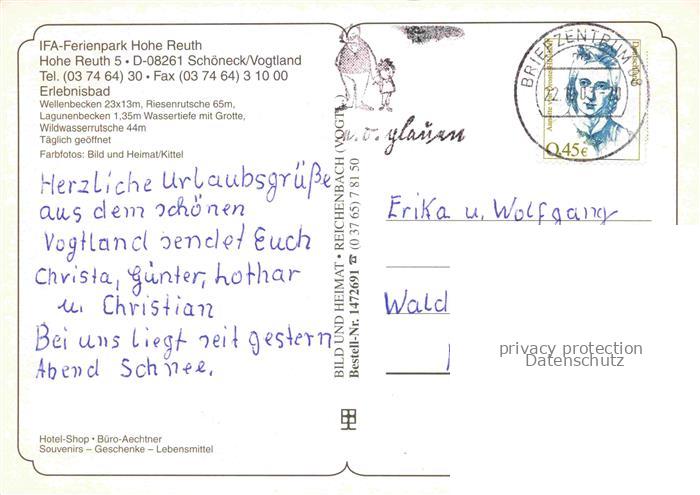 IFA-Ferienpark Hohe Reuth
Hohe Reuth 5 • D-08261 Schöneck/Vogtland
Tel. (03 74 64) 30 • Fax (03 74 64) 3 10 00
Erlebnisbad
Wellenbecken 23x13m, Riesenrutsche 65m,
Lagunenbecken 1,35m Wassertiefe mit Grotte,
Wildwasserrutsche 44m
Täglich geöffnet
Farbfotos: Bild und Heimat/Kittel
Herzliche Urlaubsgrüße
aus dem schönen
Vogtland sendet Euch
Christa, Günter, Lothar
u. Christian
Bei uns liegt seit gestern
Abend Schnee.
Hotel-Shop • Büro-Aechtner
Souvenirs – Geschenke – Lebensmittel
BILD UND HEIMAT • REICHENBACH (VOGT
Bestell-Nr. 1472691 ☎ (0 37 65) 7 81 50
e.o. plauen
BRIEFZENTRUM 08
0,45€
Erika u. Wolfgang
Wald
privacy protection
Datenschutz